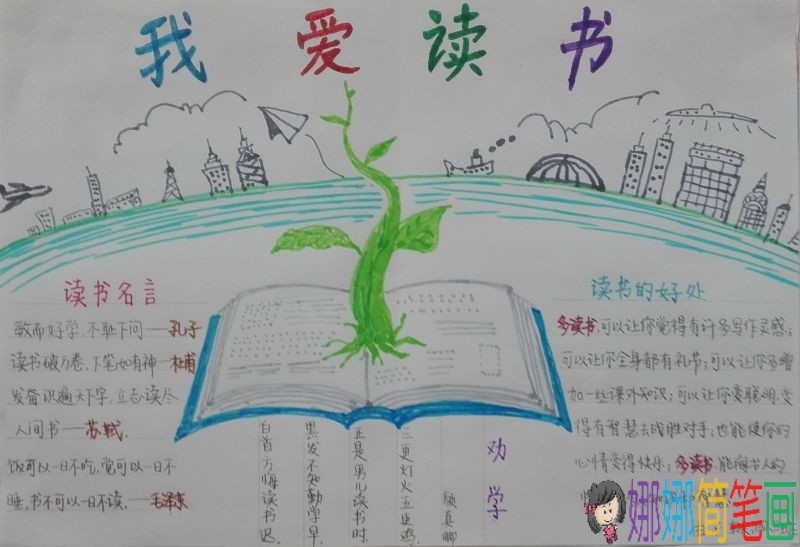 我爱读书
读书名言
敏而好学，不耻下问——孔子
读书破万卷，下笔如有神—杜甫
发奋识遍天下字，立志读尽
人间书——苏轼．
饭可以一日不吃，觉可以一日不
睡，书不可以一日不读．——毛泽东
劝学
颜真卿
三更灯火五更鸡，
正是男儿读书时．
黑发不知勤学早，
白首方悔读书迟．
读书的好处
多读书，可以让你觉得有许多写作灵感；
可以让你全身都有礼节；可以让你多增
加一些课外知识；可以让你变聪明，变
得有智慧去战胜对手；也能使你的
心情变得快乐；多读书，能
娜娜简笔画